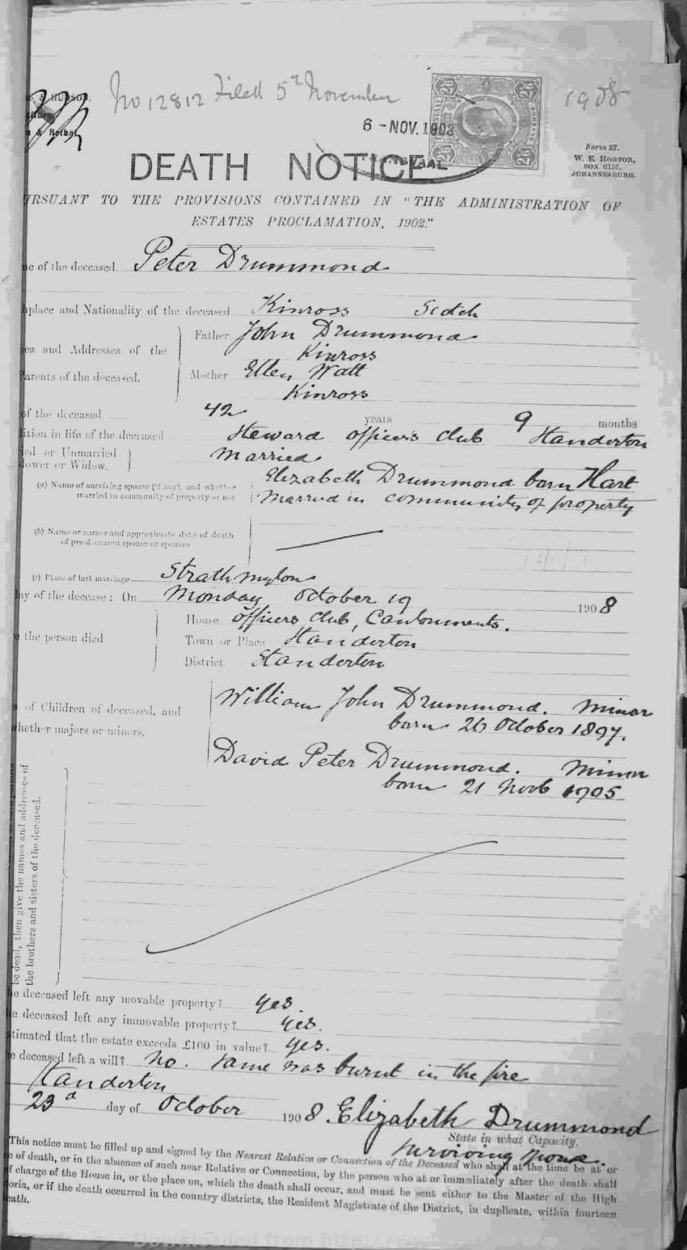 No 12812 Filed 5th November 1908
6 - NOV. 1908
Form 37.
W. E. HORTOR,
BOX 6155,
JOHANNESBURG.
DEATH NOTICE
RSUANT TO THE PROVISIONS CONTAINED IN "THE ADMINISTRATION OF
ESTATES PROCLAMATION, 1902."
e of the deceased Peter Drummond
place and Nationality of the deceased Kinross Scotch
Father John Drummond
Kinross
es and Addresses of the
arents of the deceased.
Mother Ellen Watt
Kinross
of the deceased 42 years 9 months
ition in life of the deceased Steward officers club Standerton
ed or Unmarried Married
ower or Widow.
(a) Name of surviving spouse (if any), and whether Elizabeth Drummond born Hart
married in community of property or not Married in community of property
(b) Name or names and approximate date of death
of pre-deceased spouse or spouses
(c) Place of last marriage Strathmylon
ay of the decease: On Monday October 19 1908
House officers club, Cantonments.
e the person died Town or Place Standerton
District Standerton
s of Children of deceased, and William John Drummond. Minor
hether majors or minors. born 26 October 1897.
David Peter Drummond. Minor
born 21 Novb 1905
be dead, then give the names and addresses of
the brothers and sisters of the deceased.
e deceased left any movable property? yes
e deceased left any immovable property? yes.
timated that the estate exceeds £100 in value? yes.
e deceased left a will? No. same was burnt in the fire
Standerton
23d day of October 1908 Elizabeth Drummond
State in what Capacity.
Surviving spouse.
This notice must be filled up and signed by the Nearest Relative or Connection of the Deceased who shall at the time be at or
e of death, or in the absence of such near Relative or Connection, by the person who at or immediately after the death shall
f charge of the House in, or the place on, which the death shall occur, and must be sent either to the Master of the High
oria, or if the death occurred in the country districts, the Resident Magistrate of the District, in duplicate, within fourteen
eath.
Downloaded from http://